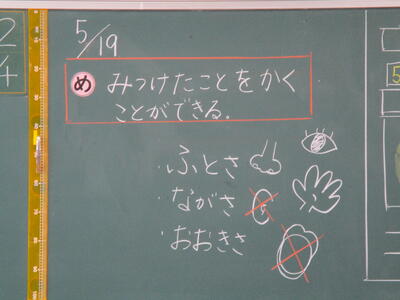 5/19
め みつけたことをかく
ことができる。
・ふとさ
・ながさ
・おおきさ
2
4
5